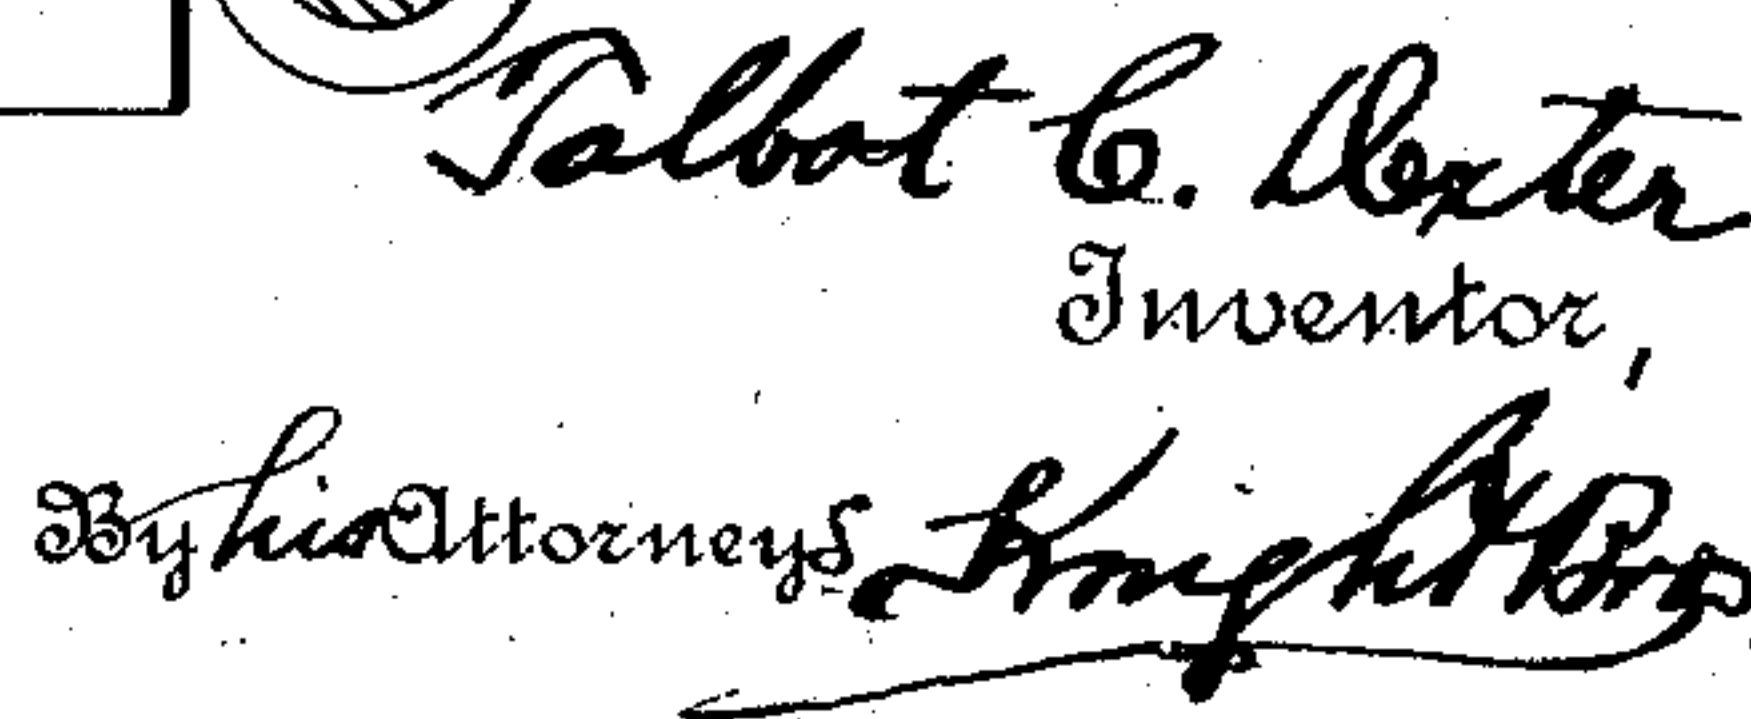 Talbot C. Dexter
Inventor,
By his Attorneys Knight Bros